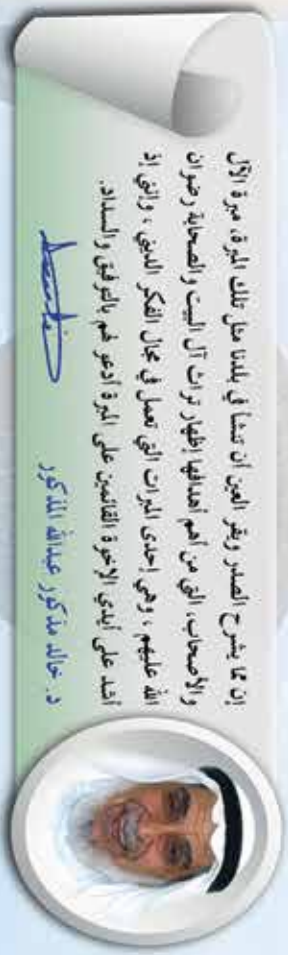 إن مما يشرح الصدر ويقر العين أن تنشأ في بلدنا مثل تلك المبرة، مبرة الآل
والأصحاب، التي من أهم أهدافها إظهار تراث آل البيت والصحابة رضوان
الله عليهم، وهي إحدى المبرات التي تعمل في مجال الفكر الديني، وإنني إذ
أشد على أيدي الإخوة القائمين على المبرة أدعو لهم بالتوفيق والسداد.
د. خالد مذكور عبدالله المذكور